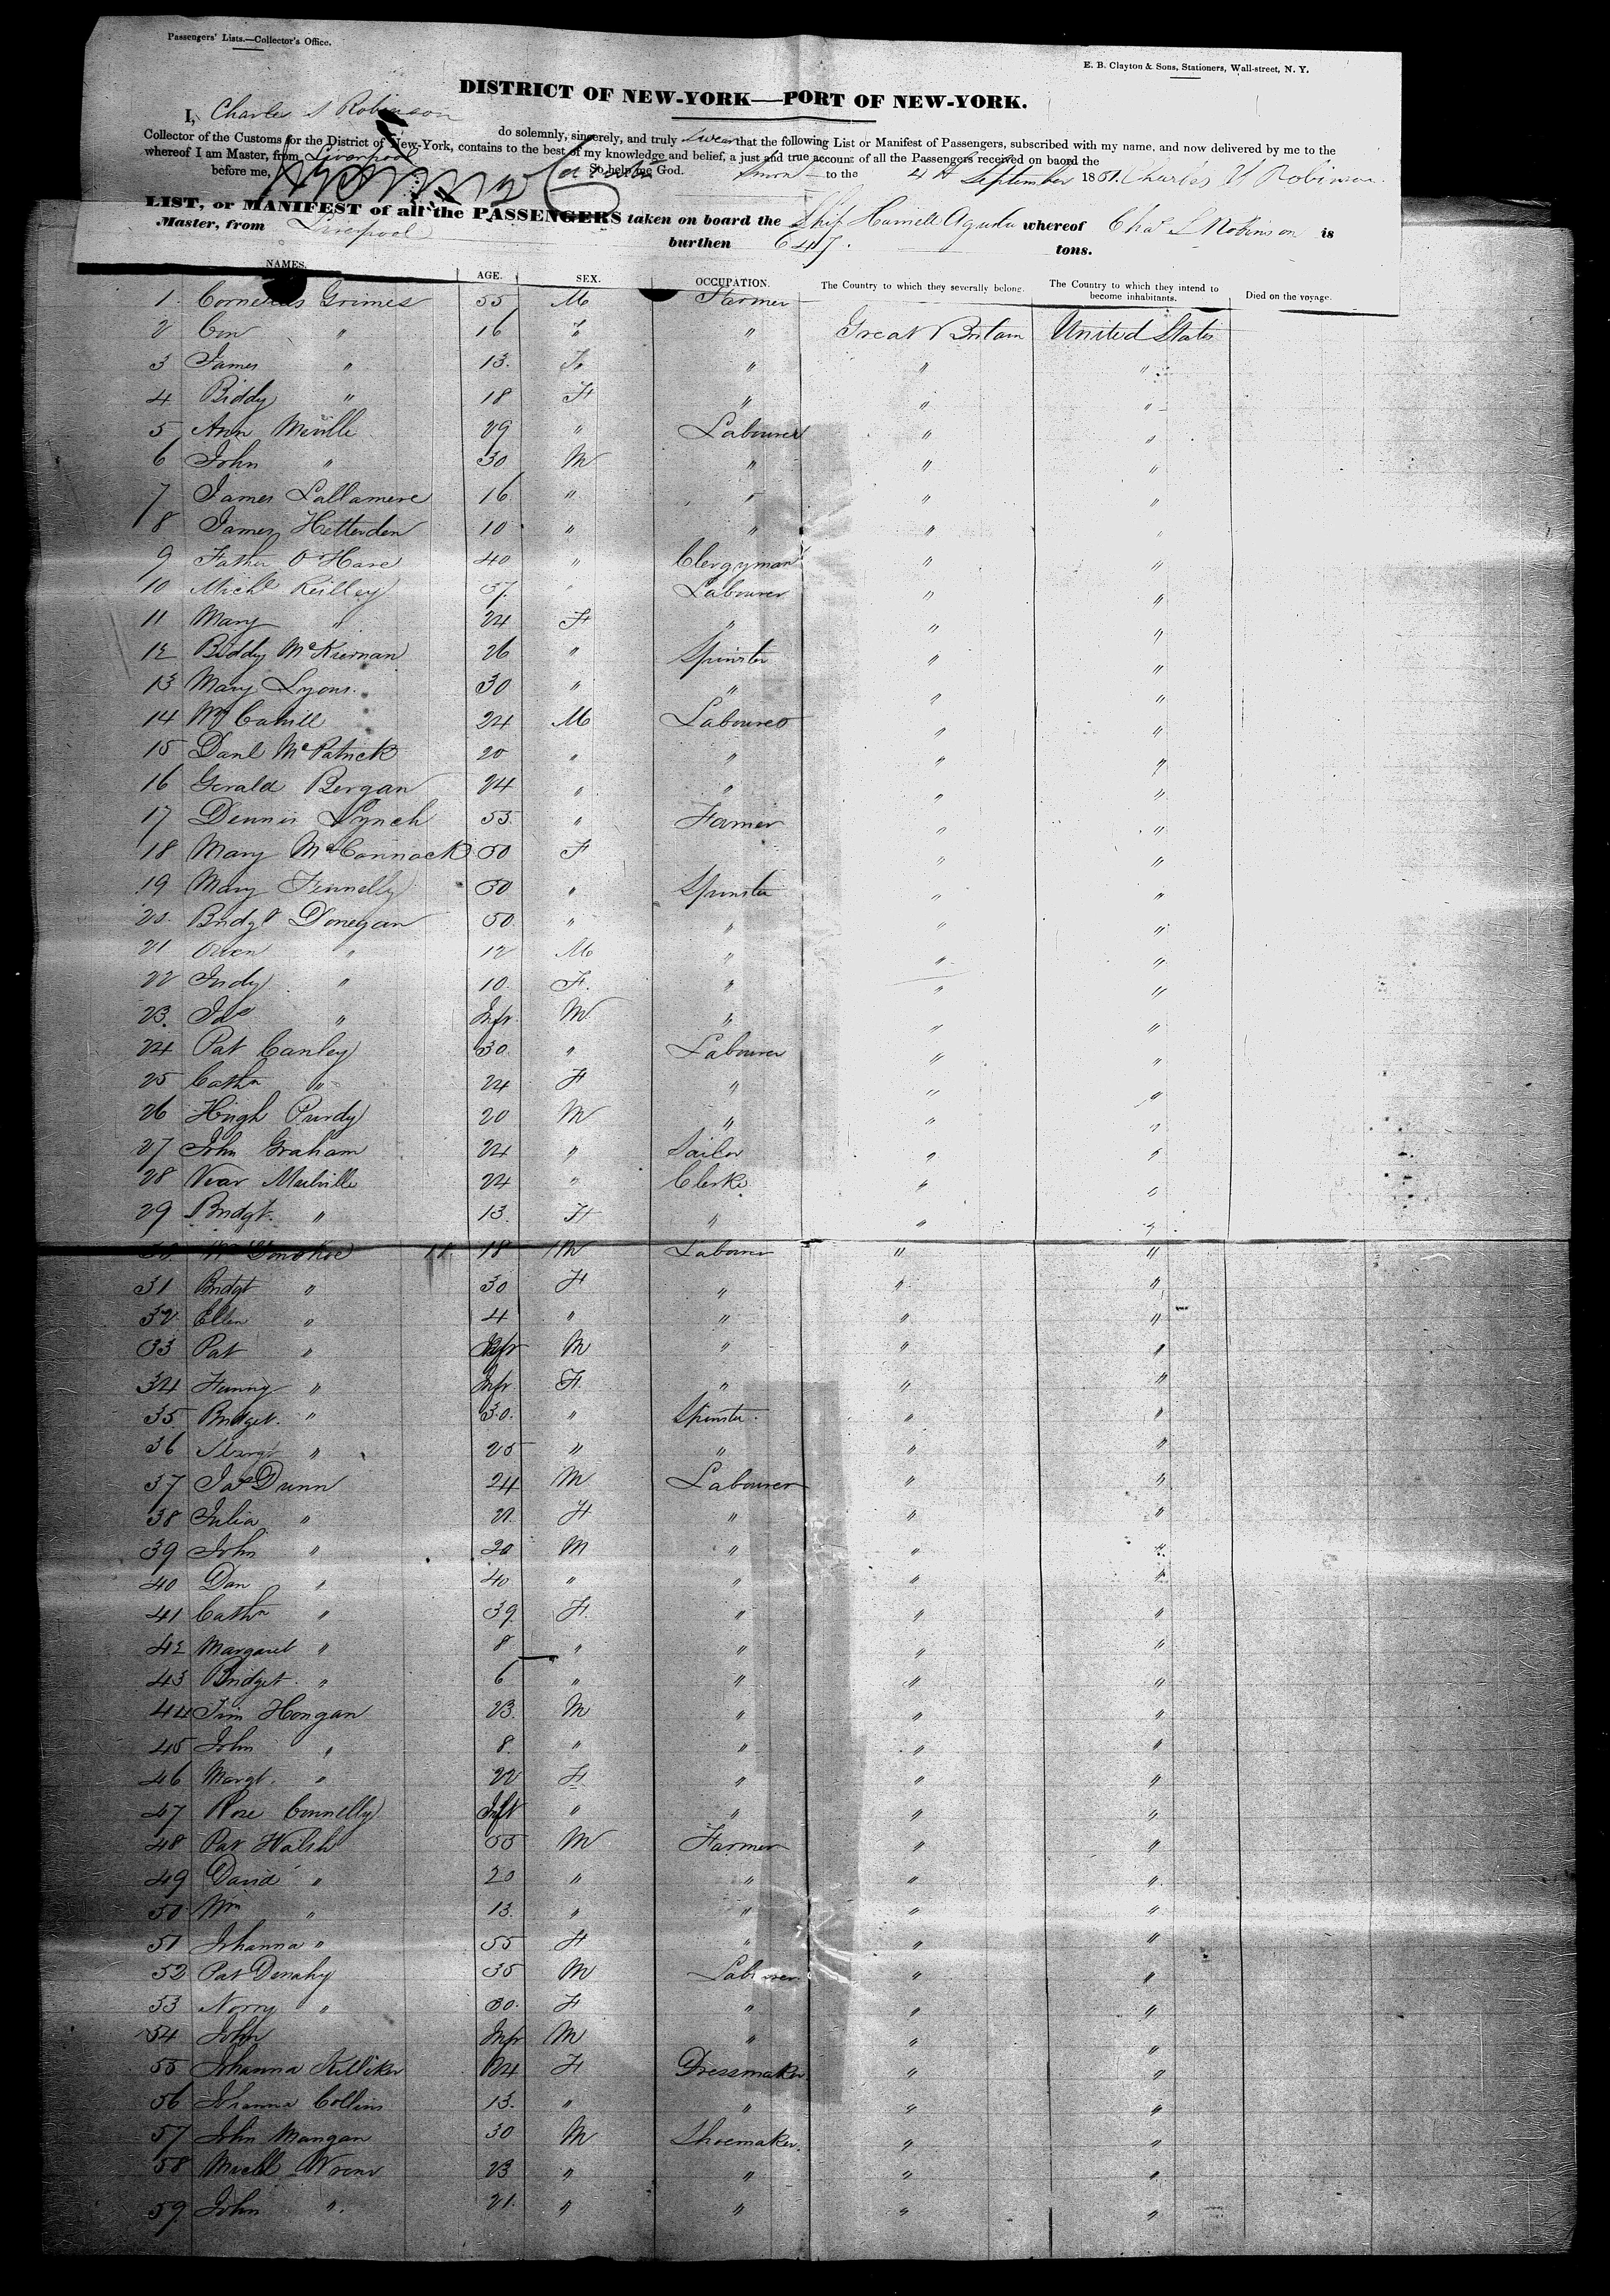 Passengers' Lists.—Collector's Office.
E. B. Clayton & Sons, Stationers, Wall-street, N. Y.
DISTRICT OF NEW-YORK—PORT OF NEW-YORK.
I, Charles S Robinson do solemnly, sincerely, and truly swear that the following List or Manifest of Passengers, subscribed with my name, and now delivered by me to the
Collector of the Customs for the District of New-York, contains to the best of my knowledge and belief, a just and true account of all the Passengers received on baord the
whereof I am Master, from Liverpool
before me, So help me God. Sworn to the 4th September 1851. Charles S Robinson.
LIST, or MANIFEST of all the PASSENGERS taken on board the Ship Harriett Agusta whereof Chas S Robinson is
Master, from Liverpool burthen 647. tons.
NAMES. AGE. SEX. OCCUPATION. The Country to which they severally belong. The Country to which they intend to become inhabitants. Died on the voyage.
1 Cornelius Grimes 55 M Farmer
2 Con " 16 " " Great Britain United States
3 James " 13. " " "
4 Biddy " 18 F " " "
5 Ann Meville 29 " Labourer " "
6 John " 30 M " " "
7 James Lallamere 16 " " " "
8 James Hettenden 10 " " " "
9 Father O'Hare 40 " Clergyman " "
10 Michl Reilley 37. " Labourer " "
11 Mary " 24 F " " "
12 Biddy McKiernan 26 " Spinster " "
13 Mary Lyons. 30 " " " "
14 Wm Cahill 24 M Labourer " "
15 Danl McPatrick 20 " " " "
16 Gerald Bergan 24 " " " "
17 Dennis Lynch 55. " Farmer " "
18 Mary McCormack 50 F " "
19 Mary Finnelly 50 " Spinster " "
20. Bridgt Donegan 50. " " " "
21 Owen " 12 M " " "
22 Judy " 10. F. " " "
23. Jas " Inf. M " " "
24 Pat Canley 30. " Labourer " "
25 Cathn " 24 F " " "
26 Hugh Purdy 20 M " " "
27 John Graham 24 " Sailor " "
28 Mailville 24 " Clerke " "
29 Bridgt. " 13. F " " "
30. Wm Donohoe 18 M Labourer " "
31 Bridgt " 30 F " " "
32 Ellen " 4 " " " "
33 Pat " Inf M " " "
34 Fanny " Inf F. " " "
35 Bridget. " 30. " Spinster. " "
36 Margt " 25 " " " "
37 Jas Dunn 24 M Labourer " "
38 Julia " 21. F " " "
39 John " 20 M " " "
40 Dan " 40 " " " "
41 Cathn " 39. F. " " "
42 Margaret " 8 " " " "
43 Bridget. " 6 " " " "
44 Tim Hongan 23. M " " "
45 John " 8. " " " "
46 Margt. " 22 F " " "
47 Rose Connelly Inft " " " "
48 Pat Walsh 55 M Farmer " "
49 David " 20 " " " "
50 Wm " 13. " " " "
51 Johanna " 55 F " " "
52 Pat Denahy 35 M Labourer " "
53 Norry " 30. F " " "
54 John Inf M " " "
55 Johanna Killiker 24 F Dressmaker " "
56 Johanna Collins 13. " " " "
57 John Mangan 30 M Shoemaker. " "
58 Michl Wrenn 23 " " " "
59 John ". 21. " " " "